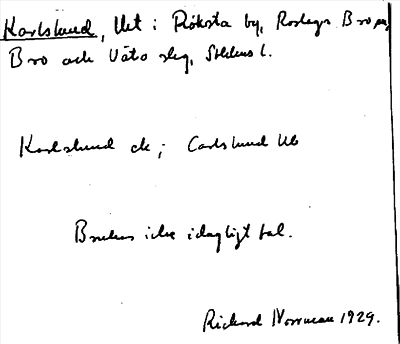 Karlslund, Ut i Röksta by, Roslags Bro sn,
Bro och Vätö skg, Sthlms l.
Karlslund ek; Carlslund Ub
Brukas icke i dagligt tal.
Rickard Norrman 1929.